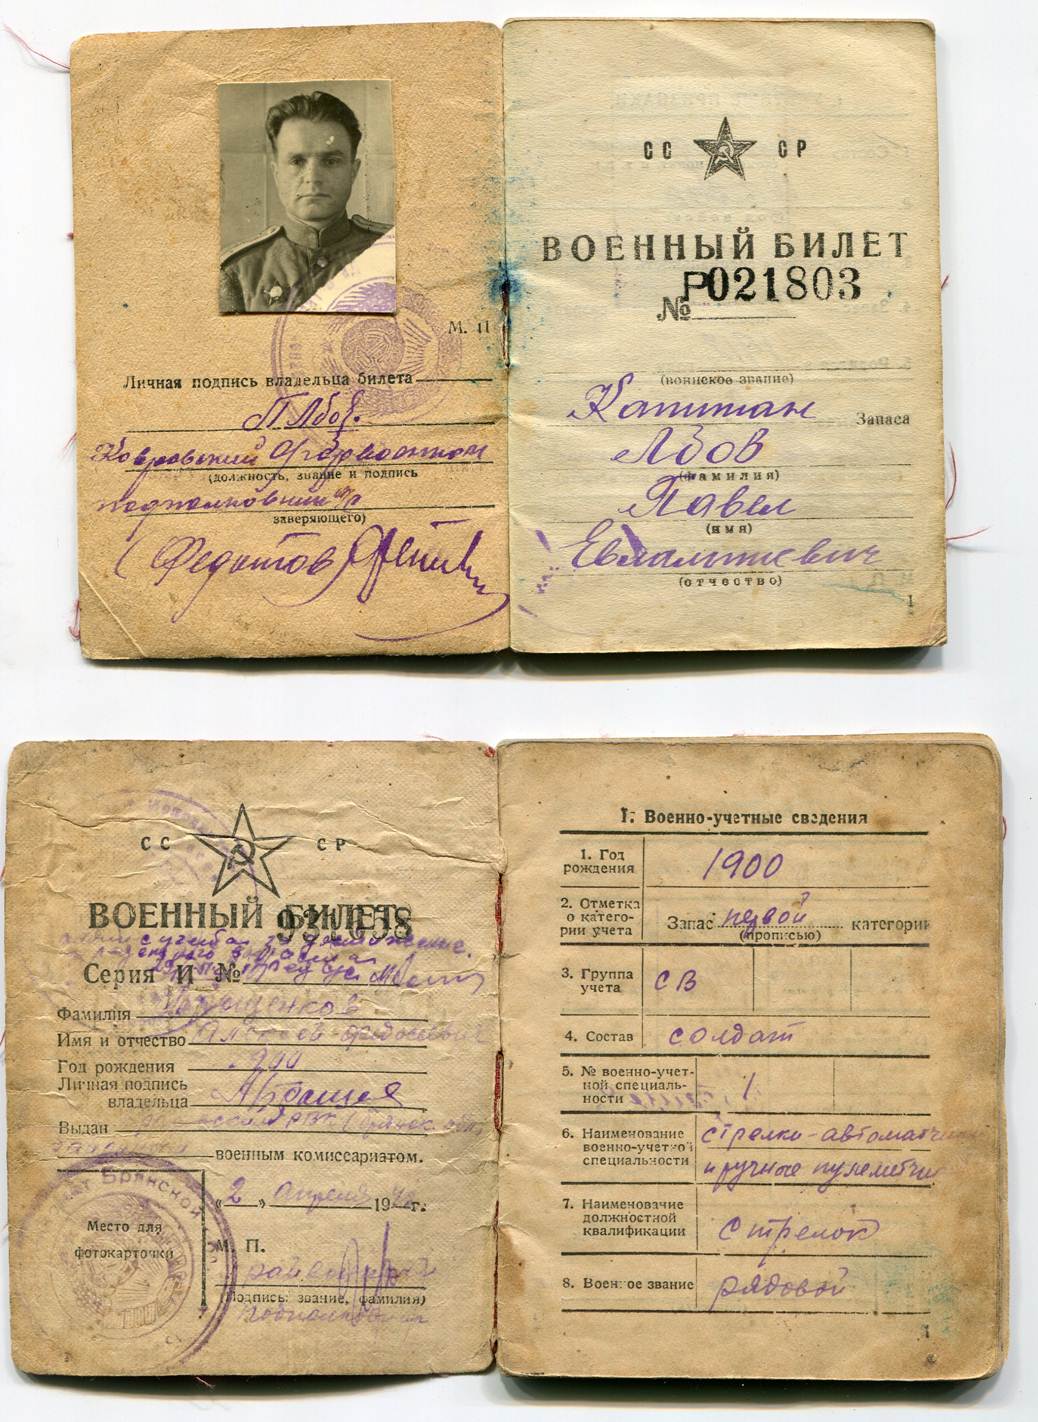 М. П
Личная подпись владельца билета
П Лбов.
Ковровский Горвоенком
(должность, звание и подпись
подполковник
заверяющего)
(Федотов)
СС СР
ВОЕННЫЙ БИЛЕТ
№ Р021803
(воинское звание)
Капитан Запаса
Лбов
(фамилия)
Павел
(имя)
Евлампиевич
(отчество)
1
СС СР
ВОЕННЫЙ БИЛЕТ
Серия И №
Фамилия
Имя и отчество
Год рождения 1900
Личная подпись
владельца
Выдан
военным комиссариатом.
«2» апреля 194 г.
Место для
фотокарточки
М. П.
(Подпись, звание, фамилия)
подполковник
I. Военно-учетные сведения
1. Год
рождения 1900
2. Отметка
о катего-
рии учета Запас первой категории
(прописью)
3. Группа
учета СВ
4. Состав солдат
5. № военно-учет-
ной специаль-
ности 1
6. Наименование
военно-учетной
специальности
стрелки-автоматчики
и ручные пулеметчи
7. Наименование
должностной
квалификации стрелок
8. Военное звание рядовой
1